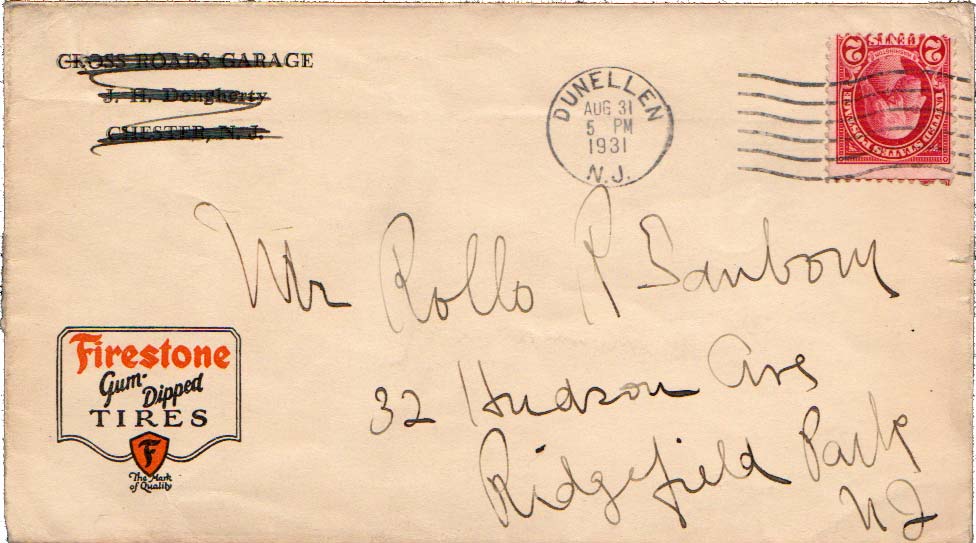 CROSS ROADS GARAGE
J. H. Dougherty
CHESTER, N. J.
DUNELLEN
AUG 31
5 PM
1931
N.J.
2 CENTS 2
WASHINGTON
UNITED STATES POSTAGE
Mr Rollo P Sanborn
32 Hudson Ave
Ridgefield Park
NJ
Firestone
Gum-
Dipped
TIRES
F
The Mark
of Quality